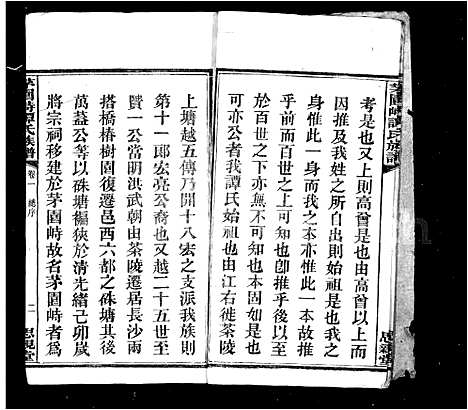 茅園峙譚氏族譜
考是也又上則高曾是也由高曾以上而
因推及我姓之所自出則始祖是也我之
身惟此一本而我之所以有此身者亦惟
乎前而百世之上可知也即推乎後以至
於百世之下亦無不可知也本固如是也
可亦公者我譚氏始祖也由江右徙茶陵
上塘越五傳乃開十八宏之支派我族則
第十一郎宏亮公裔也又越二十五世至
贊一公當明洪武朝由茶陵遷居長沙兩
搭橋椿樹園復遷邑西六都之硃塘其後
萬益公等以硃塘褊狹於清光緒己卯歲
將宗祠移建於茅園峙故名茅園峙者爲
茅園峙譚氏族譜
卷一
總序
二
思親堂